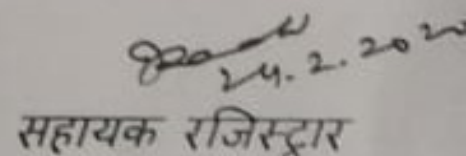 24.2.2020
सहायक रजिस्ट्रार